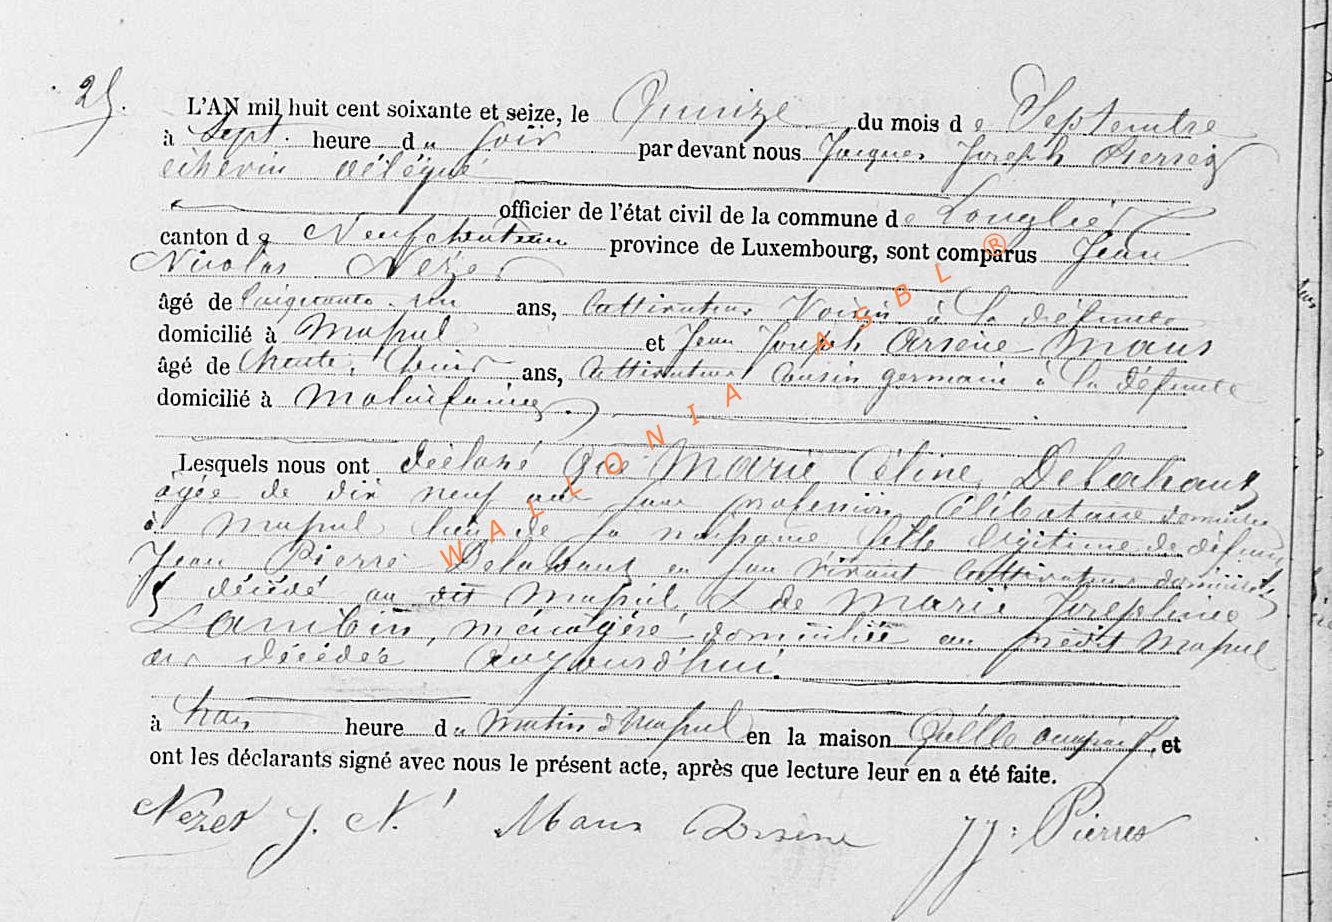 25.
L'AN mil huit cent soixante et seize, le Quinze du mois de Septembre
à Sept heure du soir par devant nous Jacques Joseph Pierres
échevin délégué
officier de l'état civil de la commune de Longlier
canton de Neufchateau province de Luxembourg, sont comparus Jean
Nicolas Nezer
âgé de Cinquante un ans, Cultivateur Voisin à la défunte
domicilié à Massul et Jean Joseph Arsène Maus
âgé de trente ans, Cultivateur Cousin germain à la défunte
domicilié à Molinfaing
Lesquels nous ont déclaré que Marie Céline Delahaut
agée de dix neuf ans sans profession, Célibataire domiciliée
à Massul lieu de sa naissance fille légitime de défunt
Jean Pierre Delahaut en son vivant Cultivateur domicilié
& décédé au dit Massul & de Marie Josephine
Lambin, ménagère domiciliée au prédit Massul
est décédée aujourd'hui.
à trois heure du matin à Massul en la maison qu'elle occupait, et
ont les déclarants signé avec nous le présent acte, après que lecture leur en a été faite.
Nezer J. N. Maus Arsène JJ: Pierres
WALLONIA ASBL ®